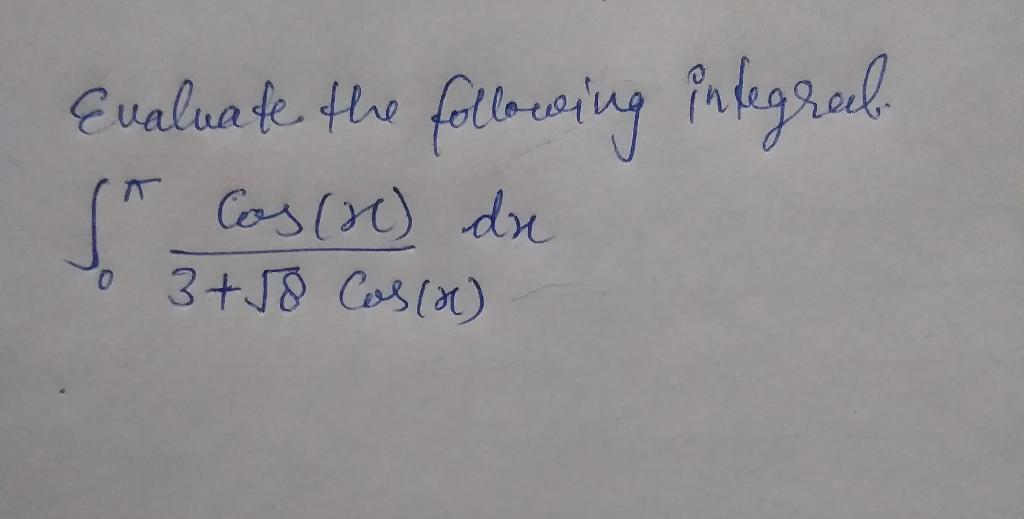 Evaluate the following integral.
∫₀^π Cos(x) / 3+√8 Cos(x) dx